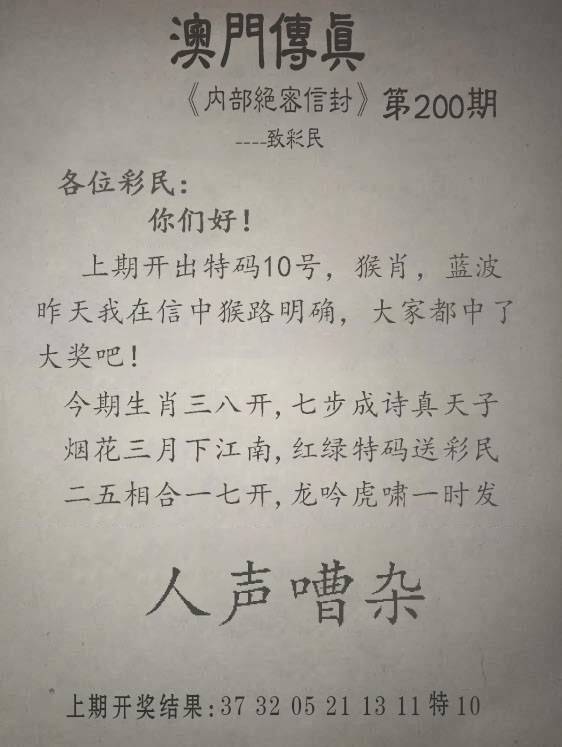 澳門傳真
《内部絕密信封》第200期
----致彩民
各位彩民:
你们好!
上期开出特码10号，猴肖，蓝波
昨天我在信中猴路明确，大家都中了
大奖吧!
今期生肖三八开,七步成诗真天子
烟花三月下江南,红绿特码送彩民
二五相合一七开,龙吟虎啸一时发
人声嘈杂
上期开奖结果:37 32 05 21 13 11 特 10